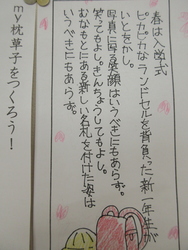 春は入学式
ピカピカなランドセルを背負った新一年生が
いとをかし。
写真に写る笑顔はいうべきにもあらず。
笑ってもよし。きんちょうしてもよし。
むなもとにある新しい名札を付けた姿は
いうべきにもあらず。
my枕草子をつくろう！